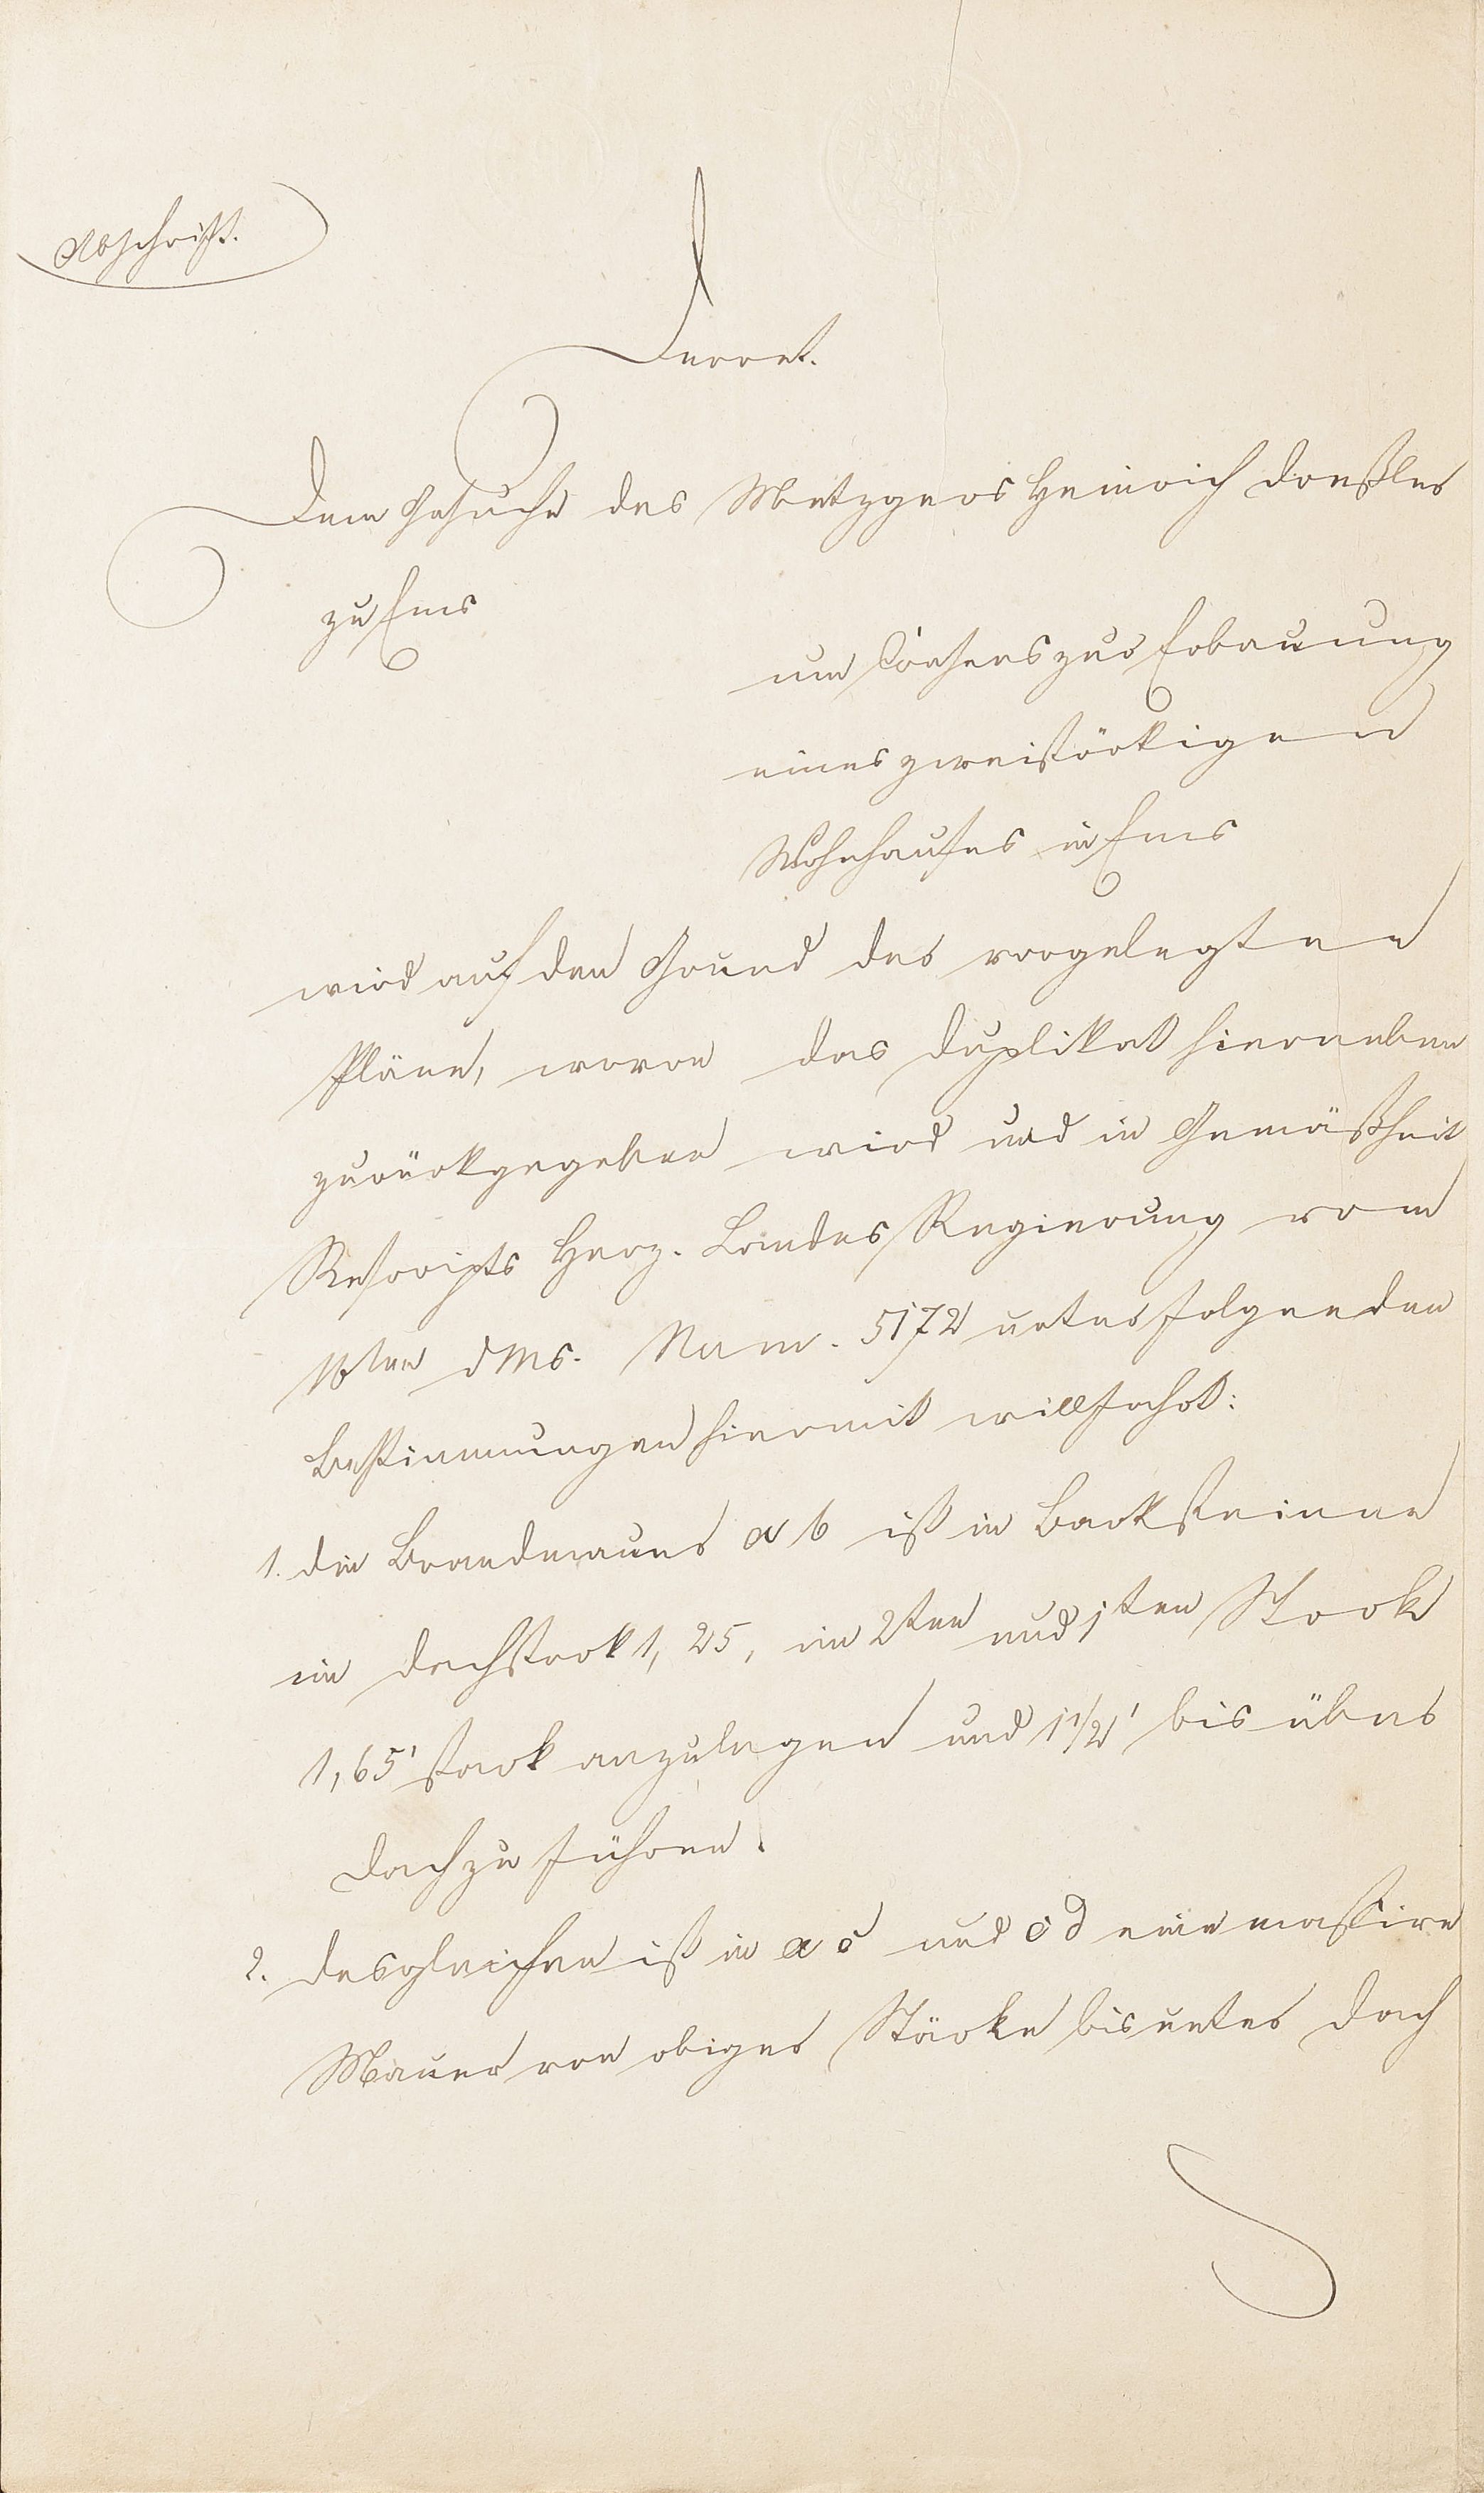 Abschrift.
Decret.
Dem Gesuche des Metzgers Heinrich Dreßler
zu Ems
um Consens zur Erbauung
eines zweistöckigen
Wohnhauses in Ems
wird auf den Grund der vorgelegten
Pläne, wovon das Duplikat hierneben
zurückgegeben wird und in Gemäßheit
Rescripts Herz. Landes Regierung vom
16ten d Ms. Num. 5172 unter folgenden
Bestimmungen hiermit willfahrt:
1. die Brandmauer a b ist in Backsteinen
im Dachstock 1,25, im 2ten und 1ten Stock
1,65' stark anzulegen und 1 1/2' bis über
Dach zu führen.
2. desgleichen ist in a c und c d eine massive
Mauer von obiger Stärke bis unter Dach